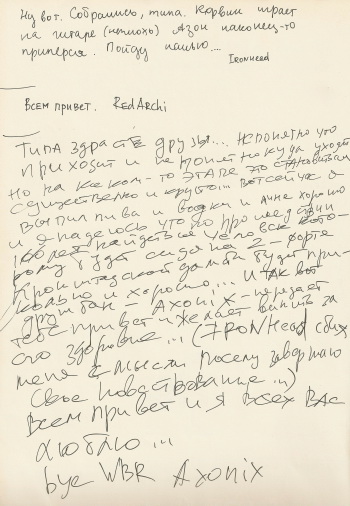 Ну вот. Собрались, типа. Корвин играет
на гитаре (неплохо) Азон наконец-то
припёрся. Пойду напью....
IRONHEAD
Всем привет. RedArchi
Типа здрасте друзья... непонятно что
приходит и непонятно куда уходит
но на каком-то этапе это становиться
существенно и круто... вот сейчас я
выпил пива и водки и мне хорошо
и я надеюсь что по прошедствии
лет найдеться человек кото-
рому будет сидя на 2-форте
Кронштадской дамбы будет при-
кольно и хорошо... и так вот
друган - Axonix - передаёт
тебе привет и желает выпить за
его здоровие... (IRONHead сбил
меня с мысли посему завершаю
свое повествование...)
Всем привет и я всех вас
люблю...
bye WBR Axonix